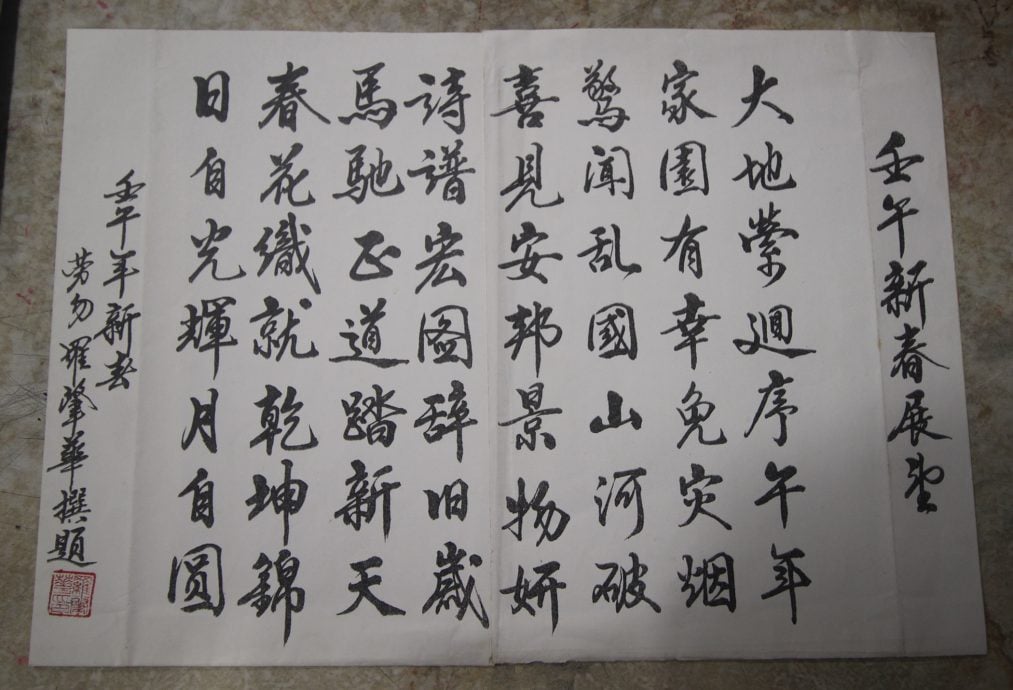 壬午新春展望
大地縈迴序午年
家園有幸免灾烟
驚聞乱國山河破
喜見安邦景物妍
詩譜宏图辞旧歳
馬馳正道踏新天
春花織就乾坤錦
日自光輝月自圆
壬午年新春
劳勿 羅肇華撰題